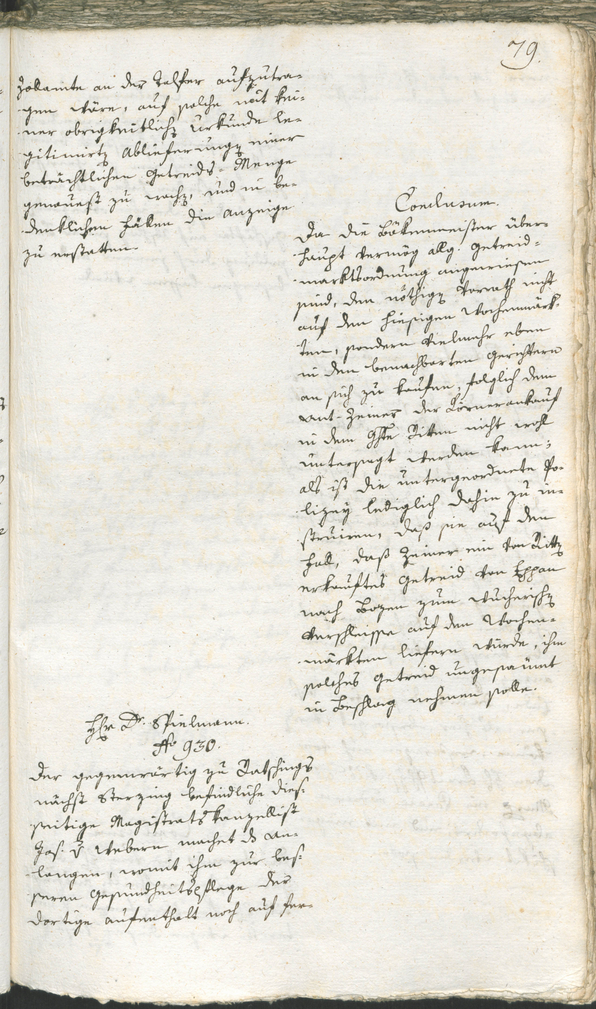 79.
Zollamte an der Talfer aufzutra-
gen wäre, auf solche mit kei-
ner obrigkeitlichen Urkunde le-
gitimirte Ablieferungen einer
beträchtlichen Getreids-Menge
genauest zu wachen, und in be-
denklichen Fällen die Anzeige
zu erstatten.
Conclusum.
Da die Bökenmeister über-
haupt vermög allg. Getreid-
marktsordnung angewiesen
sind, den nöthigen Vorrath nicht
auf den hiesigen Wochenmärk-
ten, sondern vielmehr eben
in den benachbarten Gerichtern
an sich zu kaufen, folglich dem
Zeiner der Körnerankauf
in dem Gerichte Ritten nicht wohl
untersagt werden kann;
als ist die untergeordnete Po-
lizey lediglich dahin zu in-
struiren, daß sie auf den
Fall, daß Zeiner ein von Ritten
erkauftes Getreid von Eppan
nach Bozen zum wucherischen
Verschleisse auf den Wochen-
märkten liefern würde, ihm
solches Getreid ungesäumt
in Beschlag nehmen solle.
Hr. Dr. Spielmann.
No 930.
Der gegenwärtig zu Ratschings
nächst Sterzing befindliche dies-
seitige Magistratskanzellist
Jos. v Webern machet d. An-
langen, womit ihm zur bes-
seren Gesundheitspflege der
dortige Aufenthalt noch auf fer-